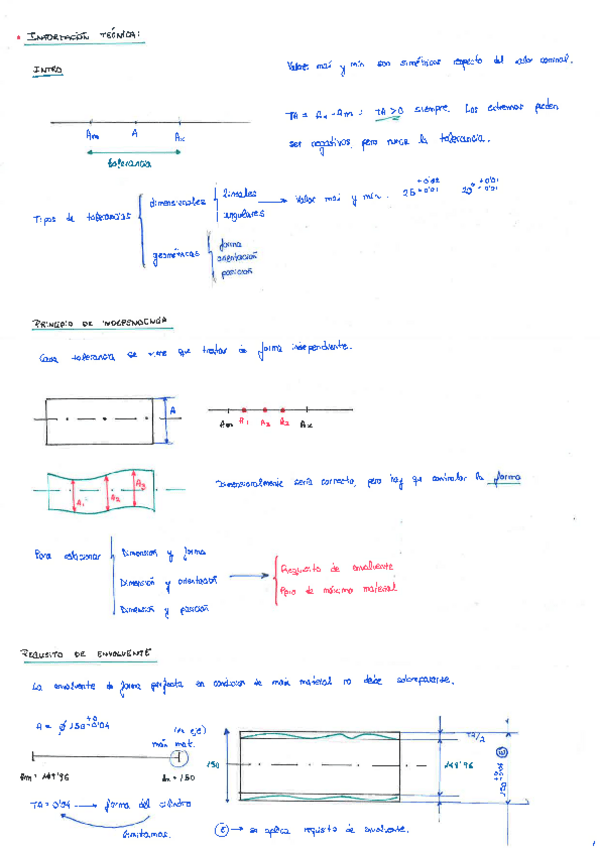 * INFORMACIÓN TEÓRICA:
INTRO
Valores max y min son simétricos respecto del valor nominal.
Am A Ax
tolerancia
TA = Ax - Am : TA>0 siempre. Los extremos pueden
ser negativos, pero nunca la tolerancia.
Tipos de tolerancias
dimensionales
lineales
angulares
Valor max y min.
geométricas
forma
orientación
posición
PRINCIPIO DE INDEPENDENCIA
Cada tolerancia se tiene que tratar de forma independiente.
A
Am A1 A2 A3 Ax
A1 A2 A3
Dimensionalmente sería correcto, pero hay que controlar la forma
Para relacionar
Dimensión y forma
Dimensión y orientación
Dimensión y posición
Requisito de envolvente
de máximo material
REQUISITO DE ENVOLVENTE
La envolvente de forma perfecta en condición de max material no debe sobrepasarse.
A = ϕ 150 +0 -0'04
(en eje)
max mat.
Am = 149'96
Ax = 150
TA = 0'04 → forma del cilindro
limitamos.
150
TA/2
149'96
150 +0 -0'04 Ⓔ
Ⓔ → se aplica requisito de envolvente.